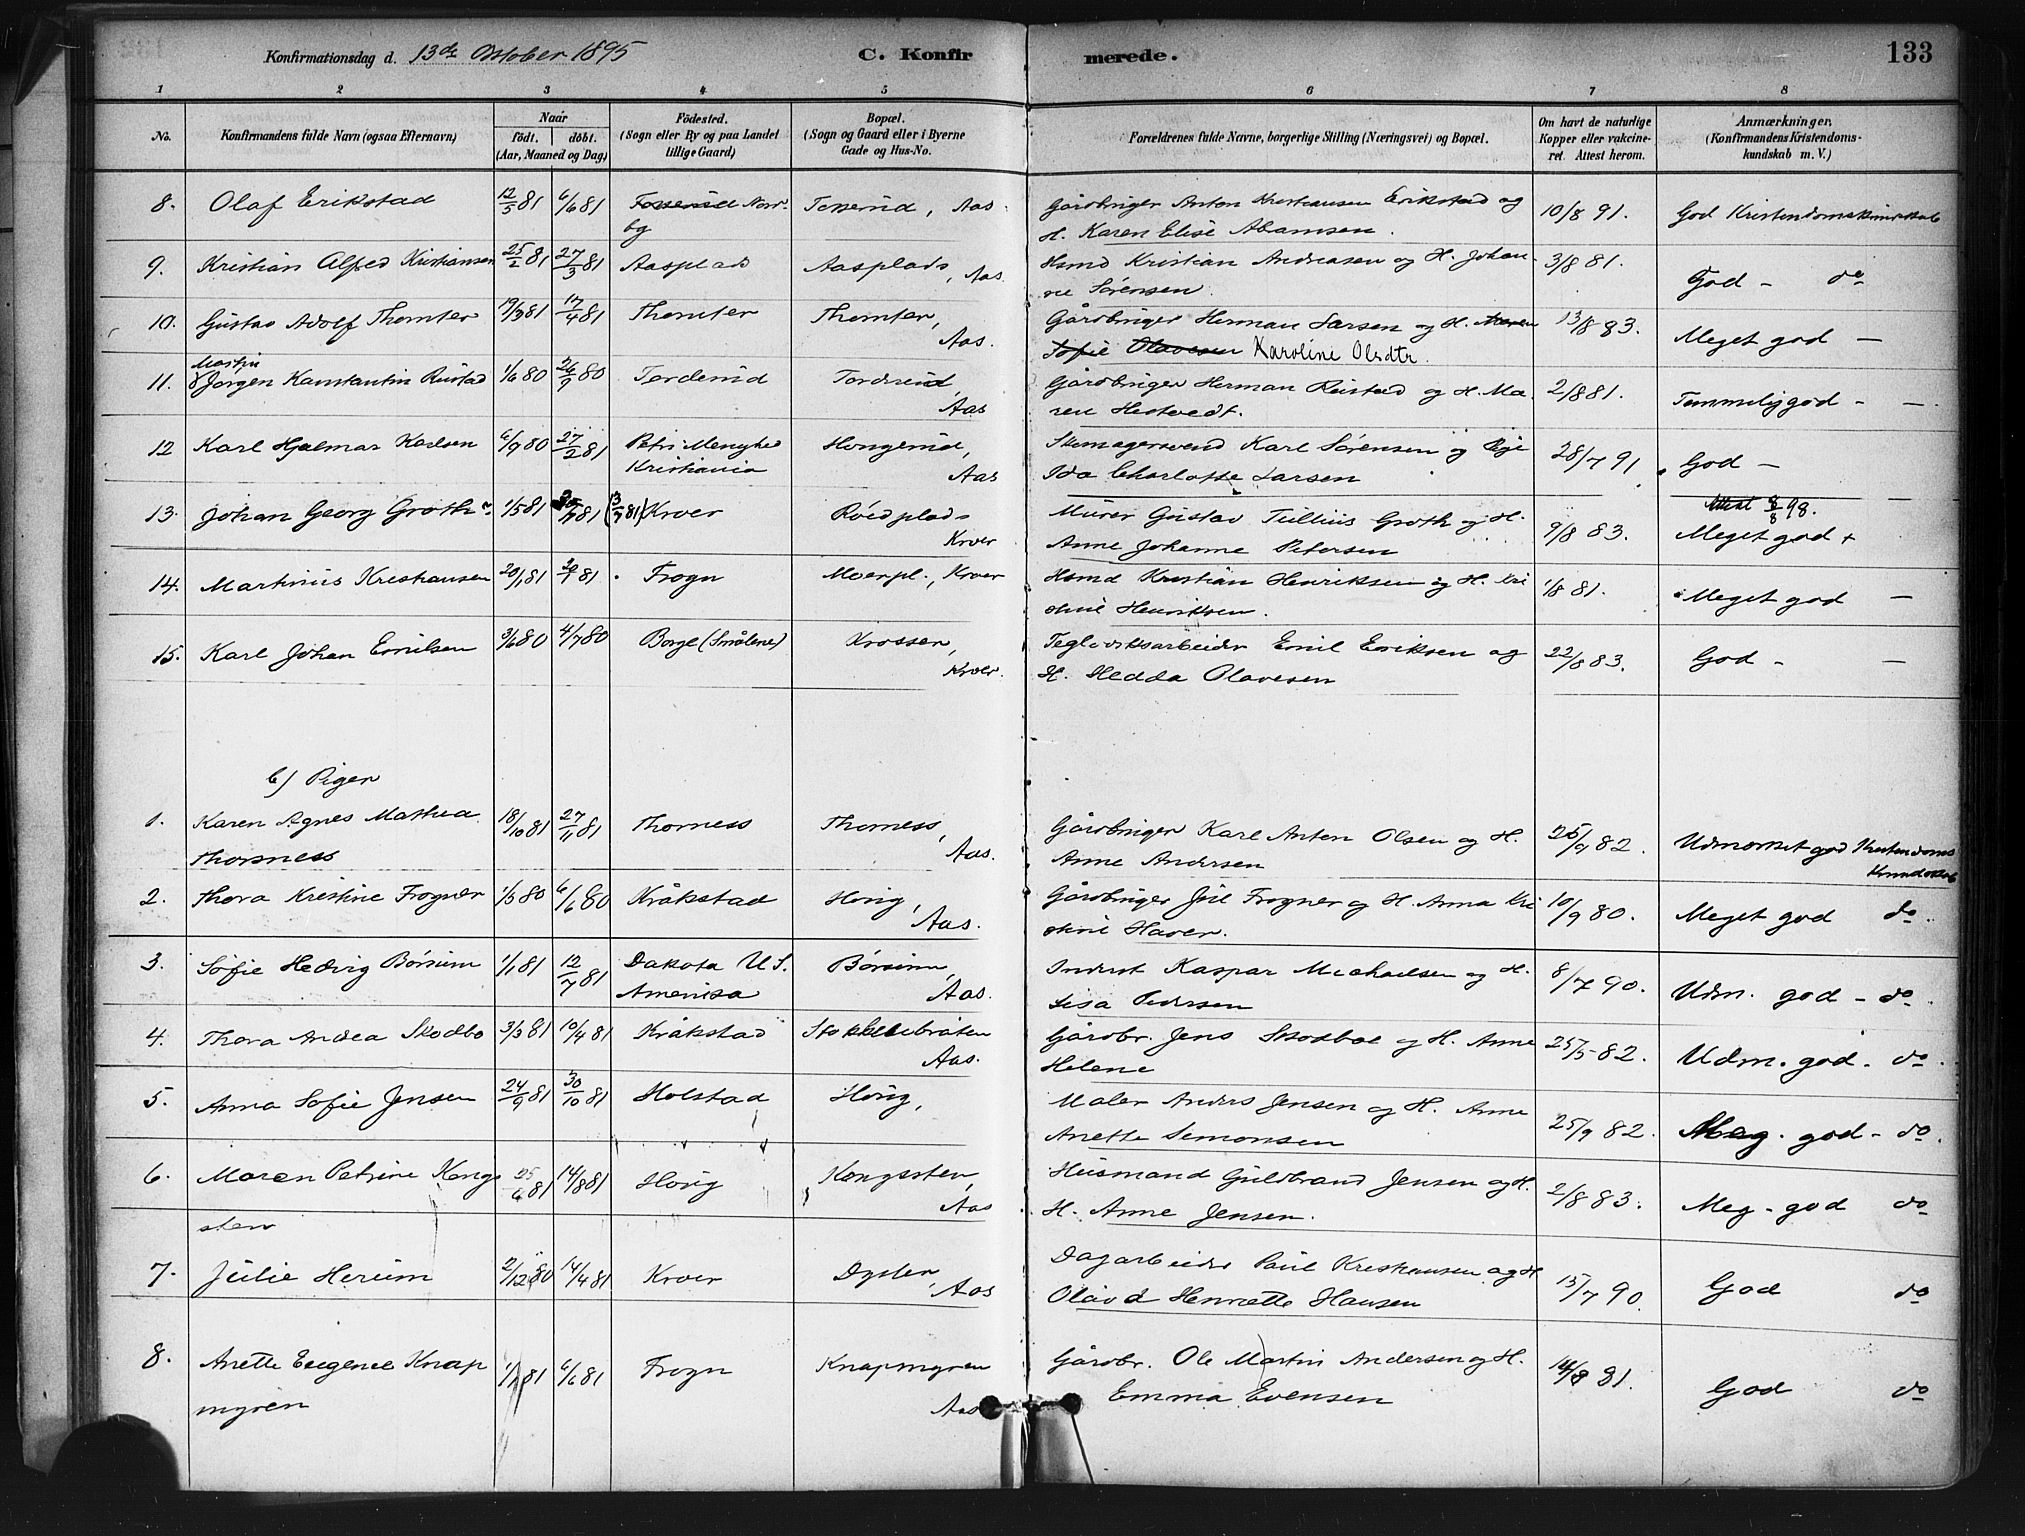 Konfirmationsdag d. 13de Oktober 1895 C. Konfirmerede. 133
1 2 3 4 5 6 7 8
No. Konfirmandens fulde Navn (ogsaa Efternavn) Naar födt. döbt. (Aar, Maaned og Dag) Födested. (Sogn eller By og paa Landet tillige Gaard) Bopæl. (Sogn og Gaard eller i Byerne Gade og Hus-No. Forældrenes fulde Navne, borgerlige Stilling (Næringsvei) og Bopæl. Om havt de naturlige Kopper eller vakcineret. Attest herom. Anmærkninger. (Konfirmandens Kristendomskundskab m. V.)
8. Olaf Erikstad 12/5 81 6/6 81 Nordby Aas. Gårdbruger Anton Kristiansen Erikstad og
H. Karen Elise Abamsen. 10/8 91. God Kristendomskundskab
9. Kristian Alfred Kristiansen 25/2 81 27/3 81 Aasplads Aasplads, Aas. Hsmd Kristian Andreasen og H. Johanne Sørensen. 3/8 81. God - do
10. Gustav Adolf Thomter 19/3 81 17/4 81 Thomter Thomter, Aas. Gårdbruger Herman Larsen og H. Maren
Sofie Olavesen Karoline Olsdtr. 13/8 83. Meget god -
11. Martin
Jørgen Konstantin Rustad 1/6 80 26/9 80 Torderud Torderud, Aas Gårdbruger Herman Rustad og H. Maren Hestvedt. 2/8 81. Temmelig god - -
12 Karl Hjalmar Karlsen 6/9 80 27/2 81 Petri Menighed
Kristiania Hongerud, Aas Skomagersvend Karl Sørensen og Pige
Ida Charlotte Larsen 28/7 91 God - -
13. Johan Georg Groth 1/5 81 (13/7 81) Kroer Røedplads Kroer Murer Gustav Tullius Groth og H.
Anne Johanne Petersen 9/8 83. Attest 8/8 98.
Meget god +
14. Martinius Kristiansen 20/1 81 Frogn Moerpl., Kroer Hsmd Kristian Henriksen og H. Kristine Henriksen. 1/8 81. Meget god -
15. Karl Johan Emilsen 3/6 80 4/7 80 Borge (Smålene) Krosser, Kroer. Teglværksarbeider Emil Eriksen og
H. Hedda Olavesen 22/8 83. God - -
b) Piger
1. Karen Agnes Mathea
Thorsness 18/10 81 27/11 81 Thorness Thorness, Aas. Gårdbruger Karl Anton Olsen og H.
Anne Andersen 25/9 82. Udmærket god Kristendoms
kundskab
2. Thora Kristine Frogner 1/5 80 6/6 80 Kråkstad Horig, Aas. Gårdbruger Juil Frogner og H. Anna Kristine Haver. 10/9 80. Meget god do.
3. Sofie Hedvig Børsum 1/1 81 12/7 81 Dakota U.S.
Amerika Børsum, Aas. Inderst Kaspar Michaelsen og H.
Lisa Pedersen 8/7 90. Udm. god - do.
4. Thora Andrea Skodbo 3/3 81 10/4 81 Kråkstad Stokkebråten Aas. Gårdbr. Jens Skodboe og H. Anne
Helene 25/5 82. Udm. god - do.
5. Anna Sofie Jensen 24/9 81 30/10 81 Holstad Horig, Maler Anders Jensen og H. Anne
Anette Semonsen 25/9 82. Meg. god - do.
6. Maren Petrine Kongsten 25/6 81 14/8 81 Horig Kongssten, Aas Husmand Guldbrand Jensen og H.
H. Anne Jensen. 2/8 83. Meg - god do
7. Julie Herum 2/12 80 14/4 81 Kroer Dyster, Aas Dagarbeider Paul Kristiansen og H
Olava Henriette Hansen 15/7 90. God do
8. Anette Eugenie Knapmyren 1/1 81 6/6 81 Frogn Knapmyren Aas Gårdbr. Ole Martin Andersen og H.
Emma Evensen 14/8 81. God do